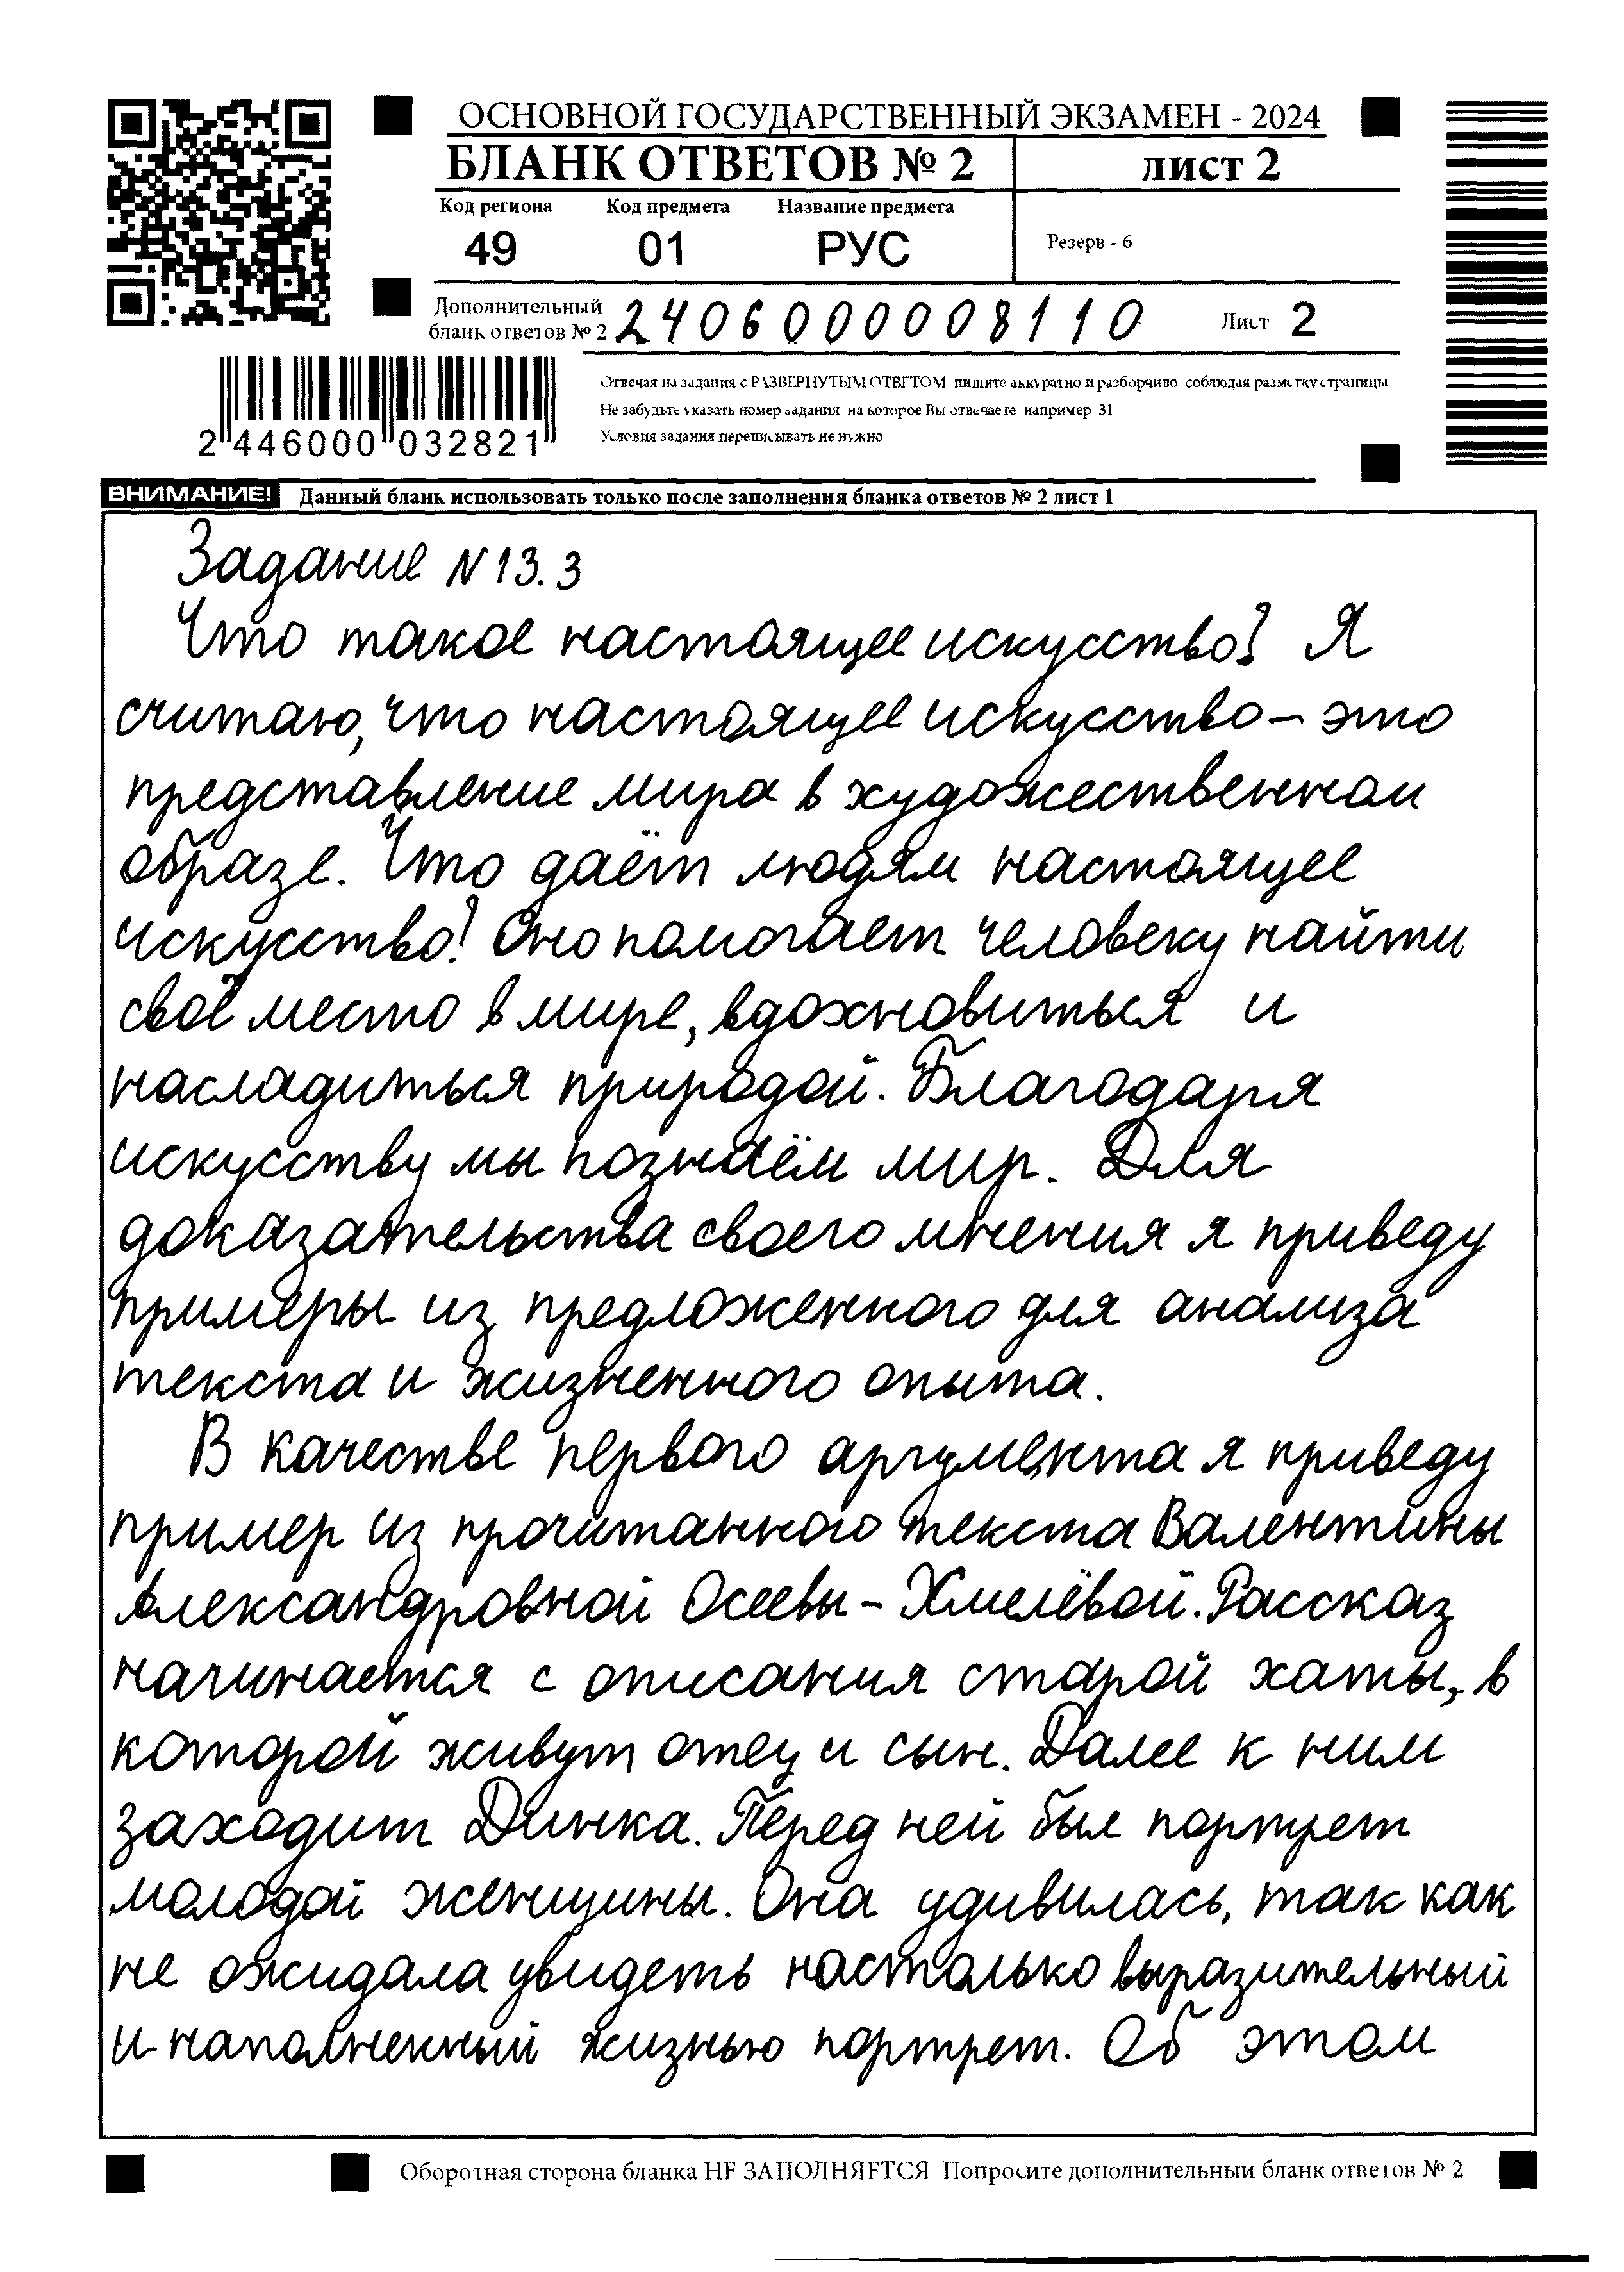 ОСНОВНОЙ ГОСУДАРСТВЕННЫЙ ЭКЗАМЕН - 2024
БЛАНК ОТВЕТОВ № 2
лист 2
Код региона
Код предмета
Название предмета
49
01
РУС
Резерв - 6
Дополнительный
бланк ответов № 2
2406000008110
Лист 2
2 446000 032821
Отвечая на задания с РАЗВЕРНУТЫМ ОТВЕТОМ пишите аккуратно и разборчиво соблюдая разметку страницы
Не забудьте указать номер задания на которое Вы отвечаете например 31
Условия задания переписывать не нужно
ВНИМАНИЕ! Данный бланк использовать только после заполнения бланка ответов № 2 лист 1
Задание N 13.3
Что такое настоящее искусство? Я
считаю, что настоящее искусство – это
представление мира в художественном
образе. Что даёт людям настоящее
искусство? Оно помогает человеку найти
своё место в мире, вдохновиться и
насладиться природой. Благодаря
искусству мы познаём мир. Для
доказательства своего мнения я приведу
примеры из предложенного для анализа
текста и жизненного опыта.
В качестве первого аргумента я приведу
пример из прочитанного текста Валентины
Александровной Осеевы-Хмелёвой. Рассказ
начинается с описания старой хаты, в
которой живут отец и сын. Далее к ним
заходит Динка. Перед ней был портрет
молодой женщины. Она удивилась, так как
не ожидала увидеть настолько выразительный
и наполненный жизнью портрет. Об этом
Оборотная сторона бланка НЕ ЗАПОЛНЯЕТСЯ Попросите дополнительный бланк ответов № 2